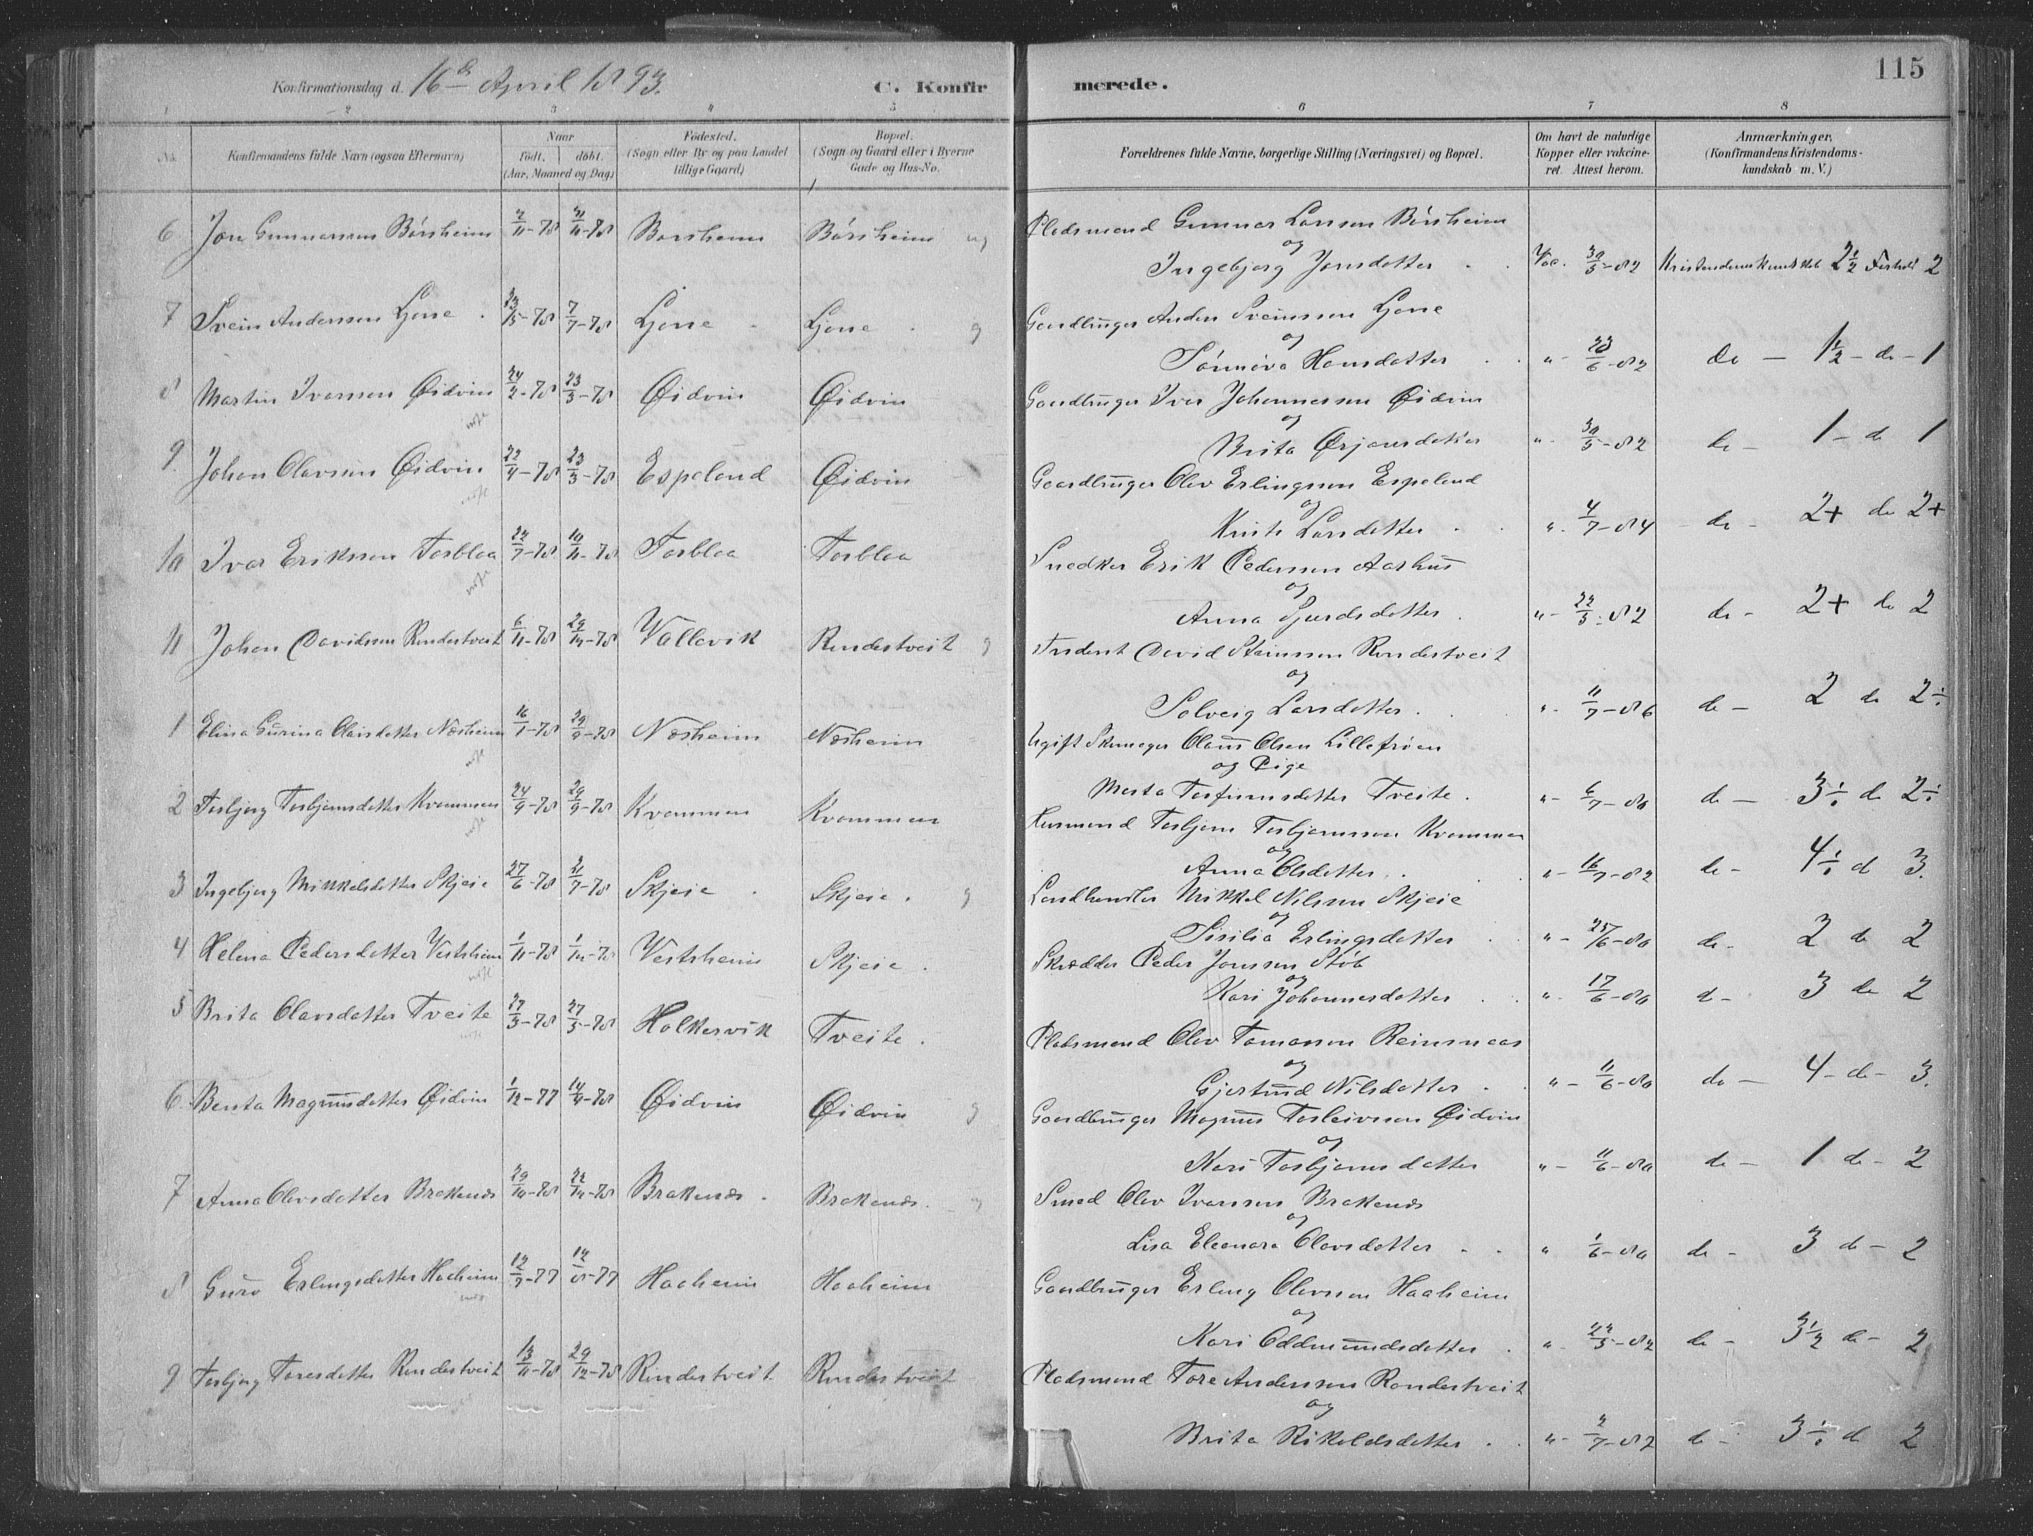 Konfirmationsdag d. 16de April 1893.
C. Konfirmerede.
115
1 2 3 4 5 6 7 8
No.
Konfirmandens fulde Navn (ogsaa Efternavn)
Naar født. døbt. (Aar, Maaned og Dag)
Fødested. (Sogn eller By og paa Landet tillige Gaard)
Bopæl. (Sogn og Gaard eller i Byerne Gade og Hus-No.
Forældrenes fulde Navne, borgerlige Stilling (Næringsvei) og Bopæl.
Om havt de naturlige Kopper eller vakcineret. Attest herom.
Anmærkninger. (Konfirmandens Kristendomskundskab m. V.)
6 Jon Gunnarsen Børsheim Børsheim Børsheim
Pladsmand Gunnar Larsen Børsheim
og
Ingebjørg Jonsdotter Vac. 30/5-82 Kristendomskundskab 2 1/2 Forhold 2
7 Svein Andersen Ljone 7/7-78 Ljone Ljone
Gaardbruger Anders Sveinssen Ljone
og
Sønnøva Hansdotter " 23/6-82 do - 1 1/2 - do - 1
8 Martin Ivarsen Øidvin 24/2-78 23/3-78 Øidvin Øidvin
Gaardbruger Ivar Johannessen Øidvin
og
Brita Ørjansdotter " 30/5-82 do - 1 - do 1
9 Johan Olavsen Øidvin 23/3-78 Espeland Øidvin
Gaardbruger Olav Erlingsen Espeland
og
Larsdotter " 4/7-84 do - 2+ do 2+
10 Ivar Eriksen Torbloa 10/11-78 Torbloa Torbloa
Snedker Erik Pedersen Aarhus
og
Anna Sjurdsdotter " 22/5-82 do - 2+ do 2
11 Johan Davidsen Røndestveit 6/11-78 Vallavik Røndestveit
Student David Steinssen Røndestveit
og
Solveig Larsdotter " 11/7-86 do - 2 do 2÷
1 Elina Gurina Olavsdotter Næsheim 16/7-78 29/9-78 Næsheim Næsheim
Ugift Skomager Claus Olsen Lillefrøen
og Pige
Marta Torfinnsdotter Tveite " 6/7-80 do - 3÷ do 2÷
2 Torbjørg Torbjørnsdotter Kvammen 24/9-78 29/9-78 Kvammen Kvammen
Husmand Torbjørn Torbjørnsson Kvammen
og
Anna Olsdotter " 16/7-82 do - 4÷ do 3.
3 Ingebjørg Mikkelsdotter Skjeie 27/6-78 21/7-78 Skjeie Skjeie
Landhandler Mikkel Nilssen Skjeie
og
Sisilia Erlingsdotter " 25/6-80 do - 2 do 2
4 Helena Pedersdotter Vestrheim Vestrheim Skjeie
Skrædder Peder Jonssen Støb
og
Kari Johannesdotter " 17/6-80 do - 3 do 2
5 Brita Olavsdotter Tveite Holkesvik Tveite
Pladsmand Olav Tomassen Reinsnaas
og
Gjertrud Nilsdotter " 11/6-80 do - 4 - do - 3.
6 Benta Magnusdotter Øidvin 1/12-77 14/4-78 Øidvin Øidvin
Gaardbruger Magnus Torleivssen Øidvin
og
Kari Torbjørnsdotter " 11/6-80 do - 1 do - 2
7 Anna Olavsdotter Brakenæs Brakenæs Brakenæs
Smed Olav Ivarssen Brakenæs
og
Lisa Eleonora Olavsdotter " 1/6-80 do - 3 do - 2
8 Guro Erlingsdotter Haaheim 12/7-77 12/8-77 Haaheim Haaheim
Gaardbruger Erling Olavssen Haaheim
og
Kari Oddmundsdotter " 22/5-82 do - 3 1/2 do - 2
9 Torbjørg Toresdotter Røndestveit 13/11-78 29/12-78 Røndestveit Røndestveit
Pladsmand Tore Anderssen Røndestveit
og
Brita Rikoldsdotter " 2/7-82 do - 3÷ do 2